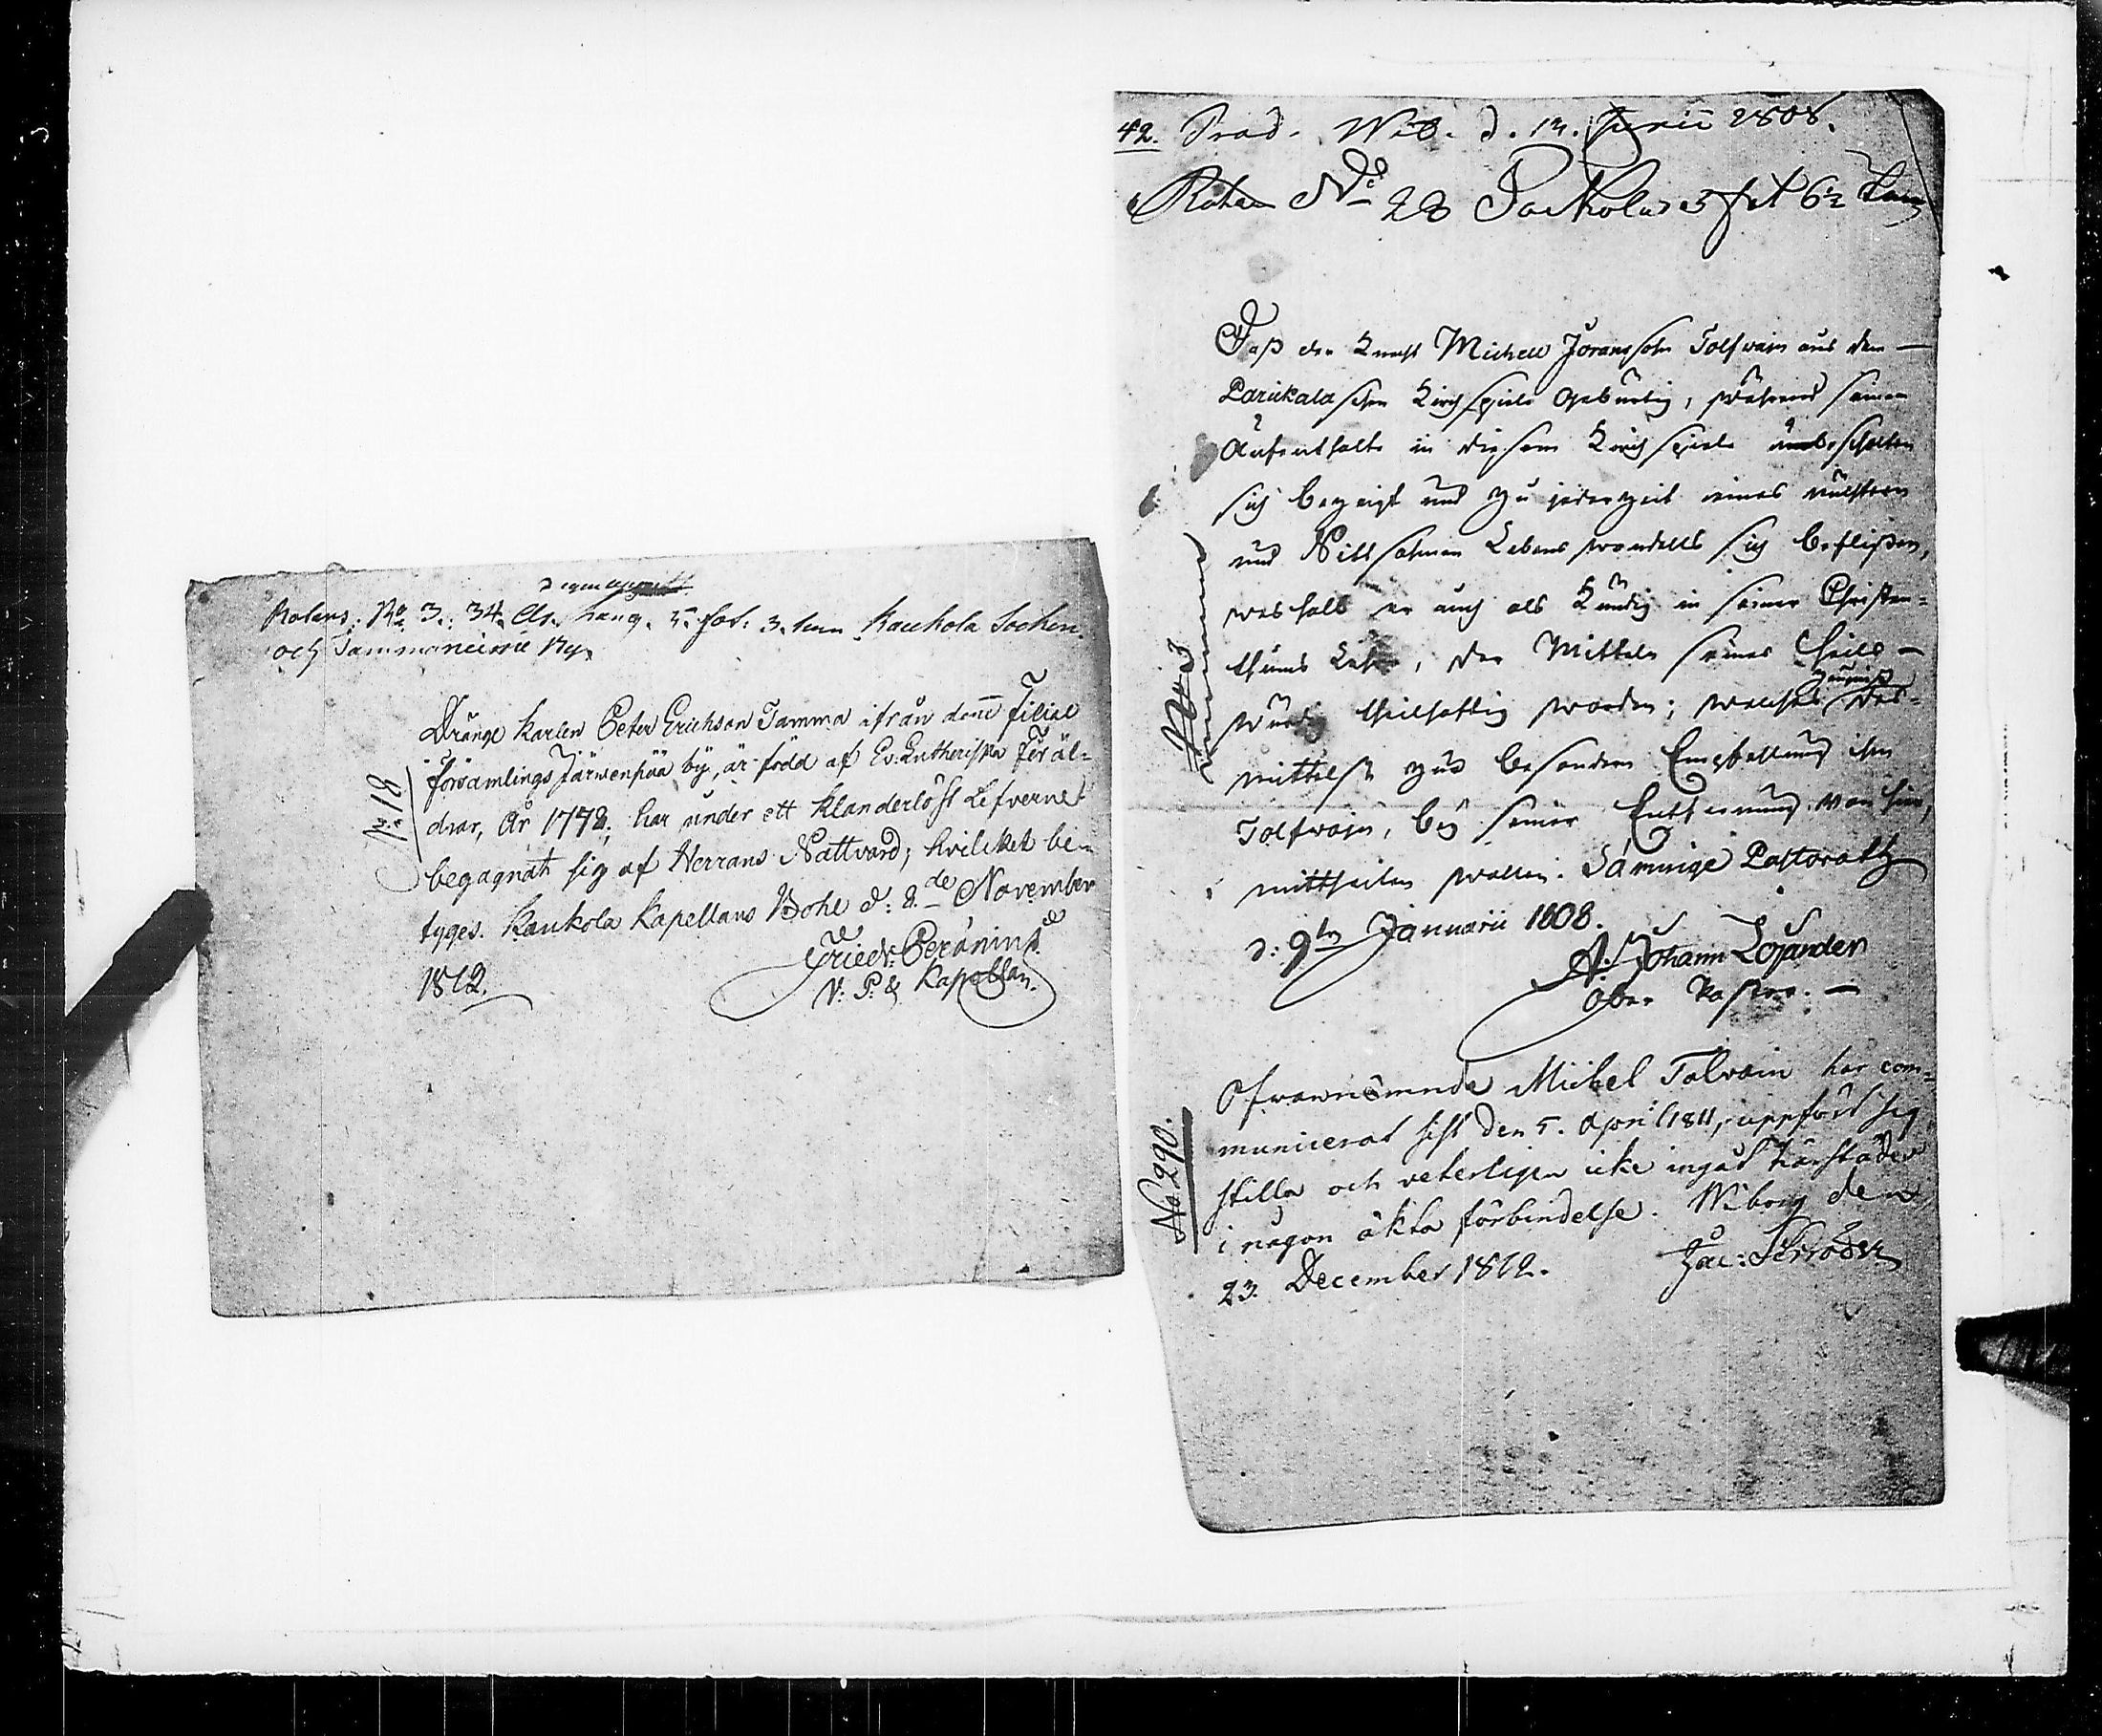 Rotens: No 3. 34. Cls. Lang. 5. fot. 3. tum Kaukola Socken
och Tammoneimi By.
No 18
Drånge Karlen Peter Erichson Tamma ifrån denne Filial
församlings Järwenpää by, är född af Ev: Lutheriska Föräl=
drar, År 1778; har under ett klanderlöst Lefverne
begagnat sig af Herrans Nattvard; hvilket be=
tyges. Kaukola Kapellans Bohl d: 8de November
1812.
Friedr: Peranius
V: P: & Kapellan.
42. Prod. Wib. d. 13. Junii 1808.
Rotan No 28 3 fot 6½ tum
Daß der Knecht Michell Joranssohn Tolfwain aus dem
Parikalaschen Kirchspiele Gebürtig, während seinen
Aufenthalte in diesem Kirchspiele unbescholten
sich bezeigt und zu jederzeit eines nüchtern
und Sittsahmen Lebenswandells sich beflißen,
weshalb er auch als Kundig in seiner Christen=
thums Lehre, der Mitteln seines Heils
würdig theilhaftig worden; welches Zeugniß des=
mittelst zur besondern Empfellung ihm
Tolfwain, bey seiner Entfernung von hier,
mittheilen wollen. Pastorath
d: 9ten Januarii 1808.
A: Johann Lojander
Ober Pastor.
No 290.
Ofwannämnde Michel Tolvain har com=
municerat sist den 5. April 1811, uppfört sig
stilla och veterligen icke ingåt härstädes
i någon äkta förbindelse. Wiborg den
23. December 1812.
Jac: Schröder